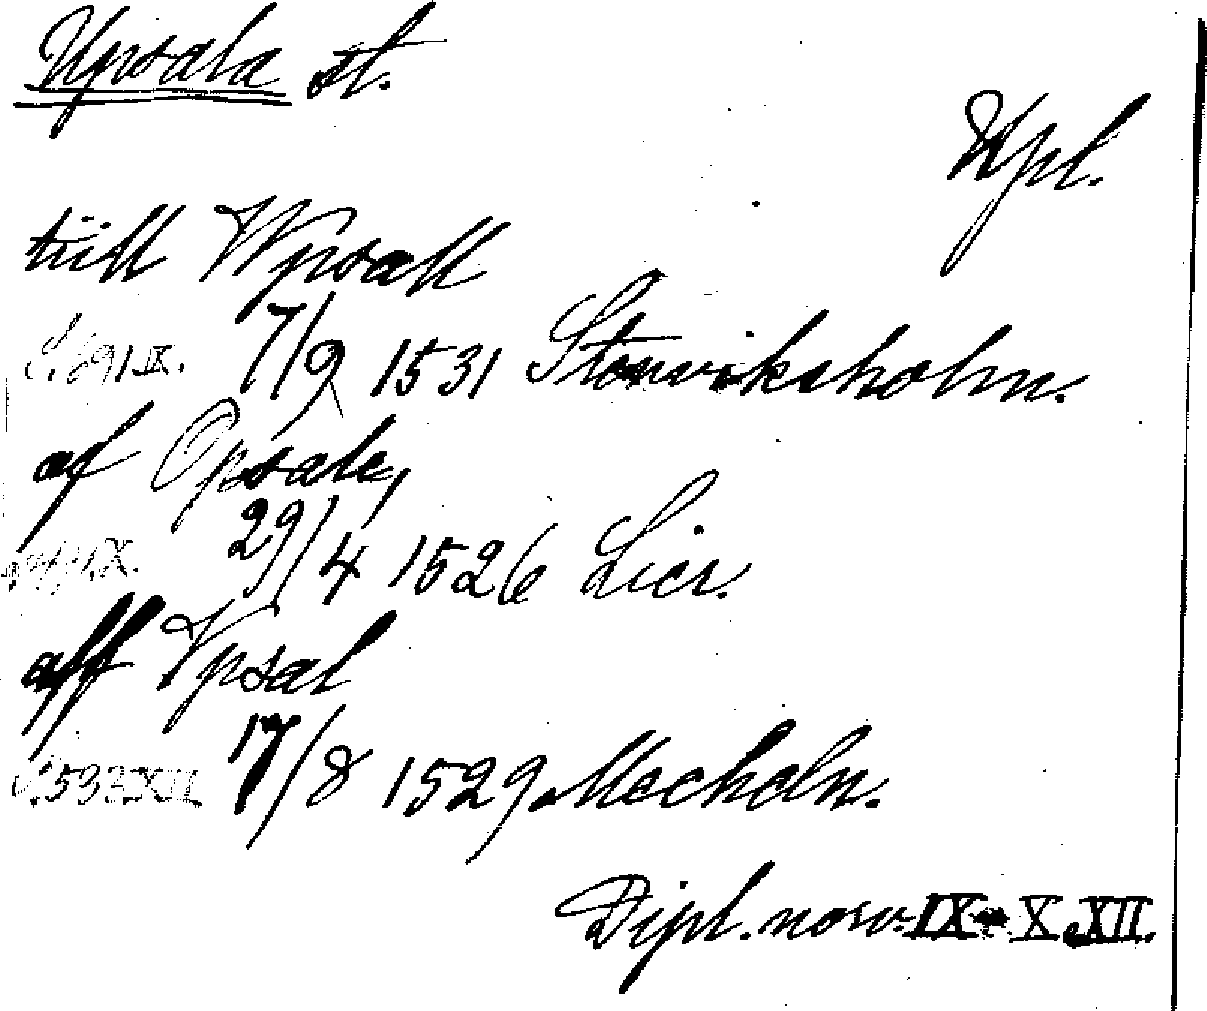 Upsala st.
Upl.
till Wpsall
S. 691 IX. 7/9 1531 Stenviksholm.
af Opsale,
X. 29/4 1526 Lier.
aff Vpsal
S. 533 XII 17/8 1529 Mecheln.
Dipl. norv. IX - X. XII.